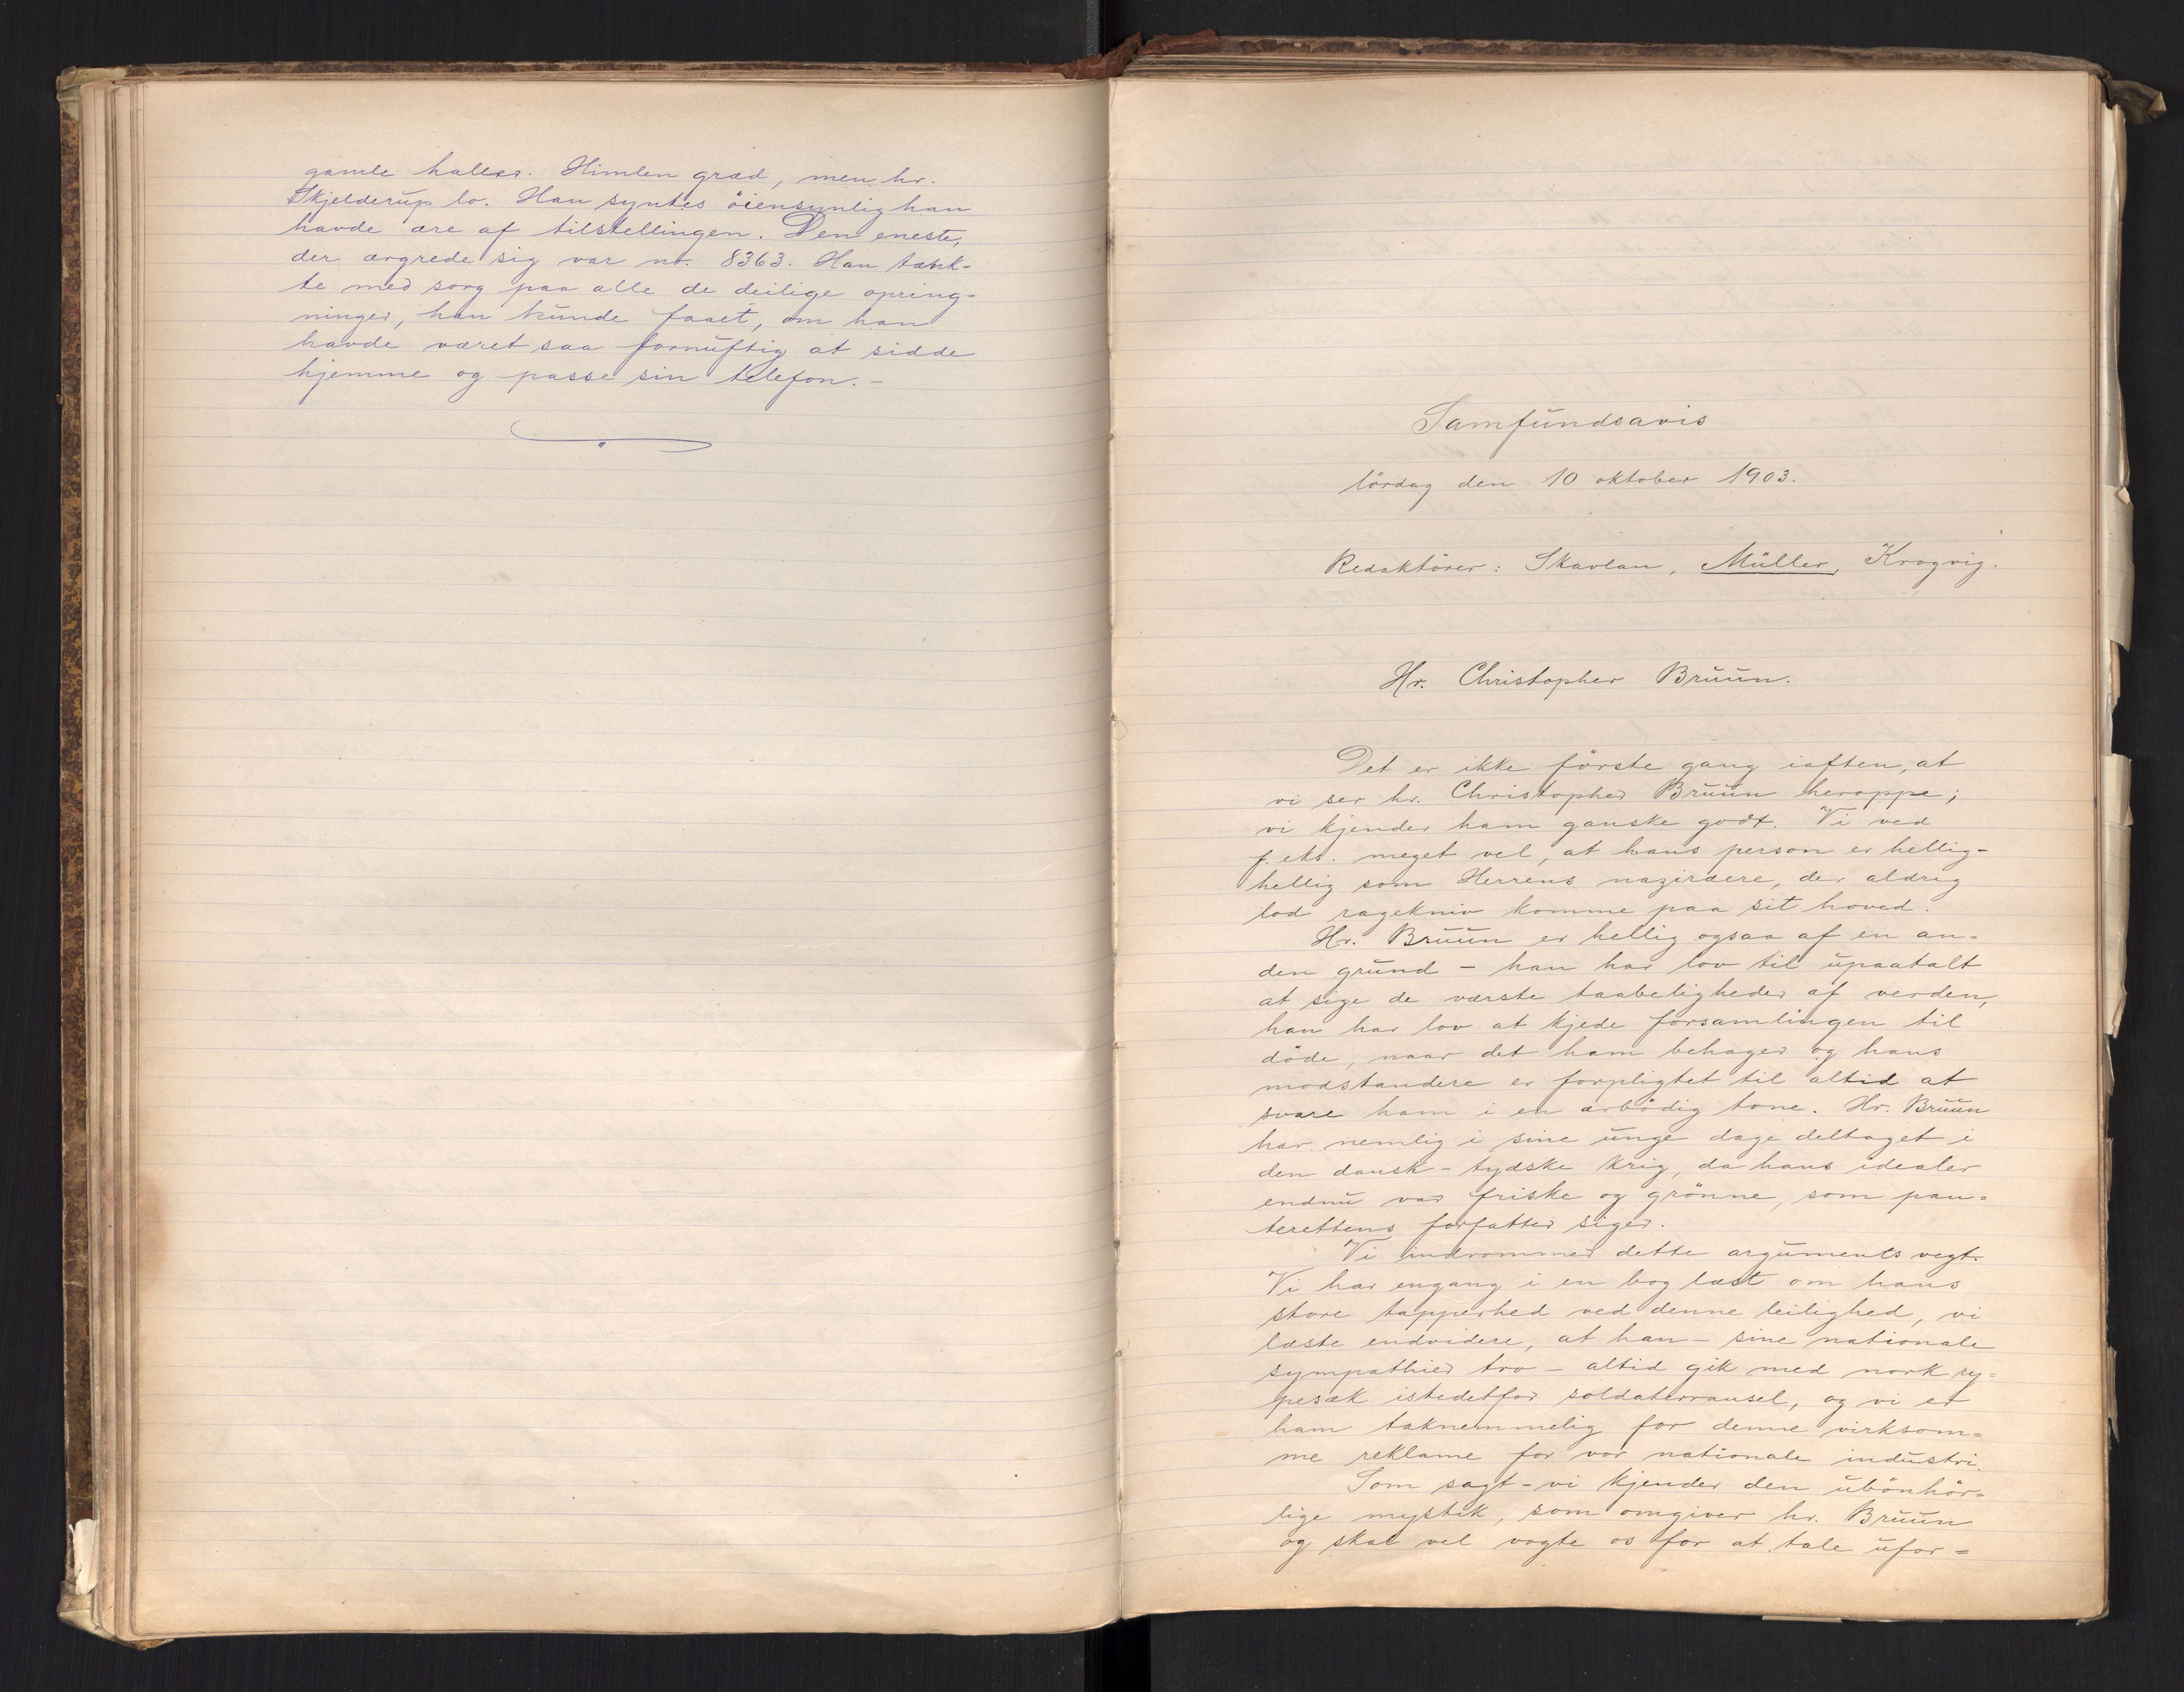 gamle halles. Himlen græd, men hr.
Skjelderup lo. Han syntes öiensynlig han
havde ære af tilstellingen. Den eneste,
der ærgrede sig var nr. 8363. Han tænk-
te med sorg paa alle de deilige opring-
ninger, han kunde faaet, om han
havde været saa fornuftig at sidde
hjemme og passe sin telefon. -
Samfundsavis
lördag den 10 oktober 1903.
Redaktörer: Skavlan, Müller, Krogvig.
Hr. Christopher Bruun.
Det er ikke förste gang iaften, at
vi ser hr. Christopher Bruun heroppe;
vi kjender ham ganske godt. Vi ved
f. eks. meget vel, at hans person er hellig-
hellig som Herrens nazirære, der aldrig
lod ragekniv komme paa sit hoved.
Hr. Bruun er hellig ogsaa af en an=
den grund - han har lov til upaatalt
at sige de værste taabeligheder af verden,
han har lov at kjede forsamlingen til
döde, naar det ham behager og hans
modstandere er forpligtet til altid at
svare ham i en ærbödig tone. Hr. Bruun
har nemlig i sine unge dage deltaget i
den dansk-tydske krig, da hans idealer
endnu var friske og grönne, som pan=
terettens forfatter siger.
Vi indrommer dette arguments vegt.
Vi har engang i en bog læst om hans
store tapperhed ved denne leilighed, vi
læste endvidere, at han - sine nationale
sympathier tro - altid gik med norsk ry=
pesæk istedetfor soldaterransel, og vi er
ham taknemmelig for denne virksom=
me reklame for vor nationale industri.
Som sagt - vi kjender den ubönhör=
lige mystik, som omgiver hr. Bruun
og skal vel vogte os for at tale ufor=